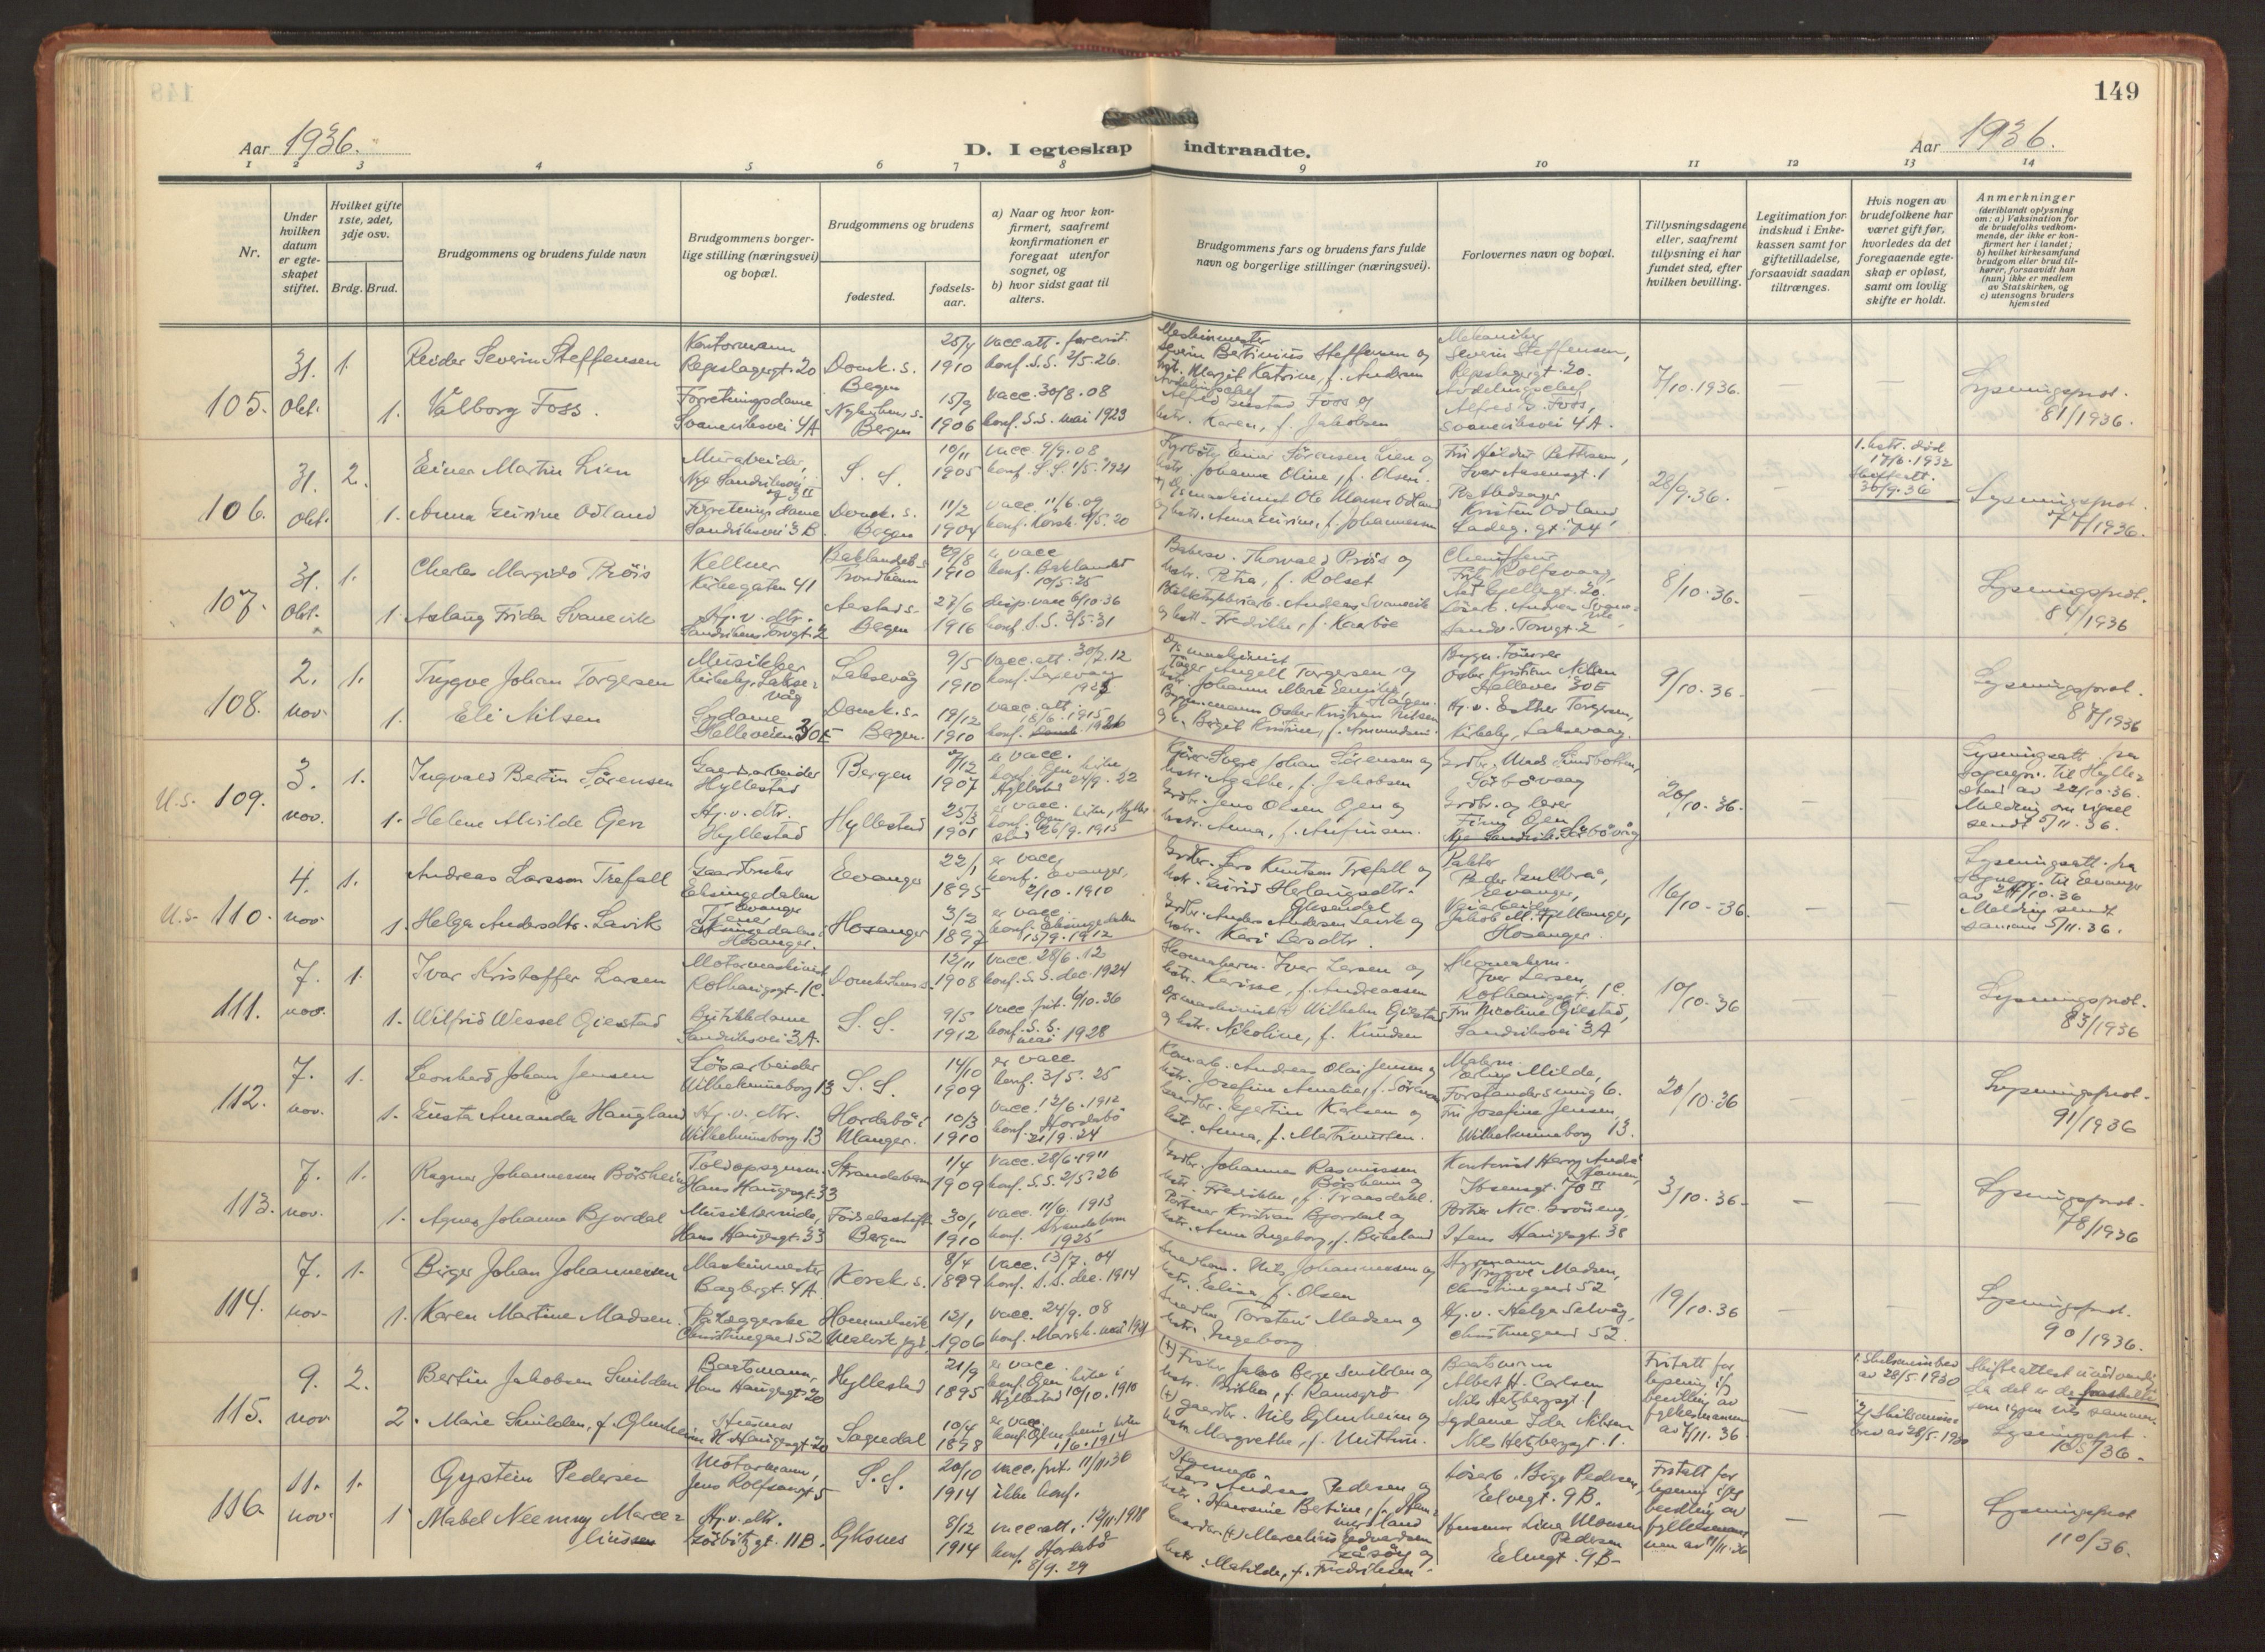 149
Aar 1936.
D. I egteskap indtraadte.
Aar 1936.
1 2 3 4 5 6 7 8 9 10 11 12 13 14
Nr.
Under hvilken datum er egteskapet stiftet.
Hvilket gifte 1ste, 2det, 3dje osv.
Brdg. Brud.
Brudgommens og brudens fulde navn
Brudgommens borgerlige stilling (næringsvei) og bopæl.
Brudgommens og brudens
fødested.
fødselsaar.
a) Naar og hvor konfirmert, saafremt konfirmationen er foregaat utenfor sognet, og
b) hvor sidst gaat til alters.
Brudgommens fars og brudens fars fulde navn og borgerlige stillinger (næringsvei).
Forlovernes navn og bopæl.
Tillysningsdagene eller, saafremt tillysning ei har fundet sted, efter hvilken bevilling.
Legitimation for indskud i Enkekassen samt for giftetilladelse, forsaavidt saadan tiltrænges.
Hvis nogen av brudefolkene har været gift før, hvorledes da det foregaaende egteskap er opløst, samt om lovlig skifte er holdt.
Anmerkninger
(deriblandt oplysning om: a) Vaksination for de brudefolks vedkommende, der ikke er konfirmert her i landet; b) hvilket kirkesamfund brudgom eller brud tilhører, forsaavidt han (hun) ikke er medlem av Statskirken, og c) utensogns bruders hjemsted
105. 31. Okt.
1. Reidar Severin Steffensen
Kontormann
Repslagergt. 20
Domk. s. Bergen
25/4 1910
konf. S.S. 2/5-26.
1. Valborg Foss.
Forretningsdame
Svaneviksvei 4A
Nykirkens s. Bergen
15/9 1906
vacc. 30/8.08
konf. S.S. mai 1923
Maskinmester
Severin Bertinius Steffensen og
hstr. Margit Katrine, f. Andersen
Avdelingschef
Alfred Gustav Foss og
hstr. Karen, f. Jakobsen
Mekaniker
Severin Steffensen,
Repslagergt. 20.
Avdelingschef
Alfred G. Foss,
Svaneviksvei 4A.
7/10.1936.
Lysningsprot.
81/1936.
106. 31. Okt.
2. Einar Martin Lien
Murarbeider,
S. S.
10/11 1905
vacc. 9/9.08
konf. S.S. 1/5.1921
1. Anna Guirine Odland
Forretningsdame
Sandviksvei 3B.
Domk. s. Bergen
11/2 1904
vacc. 11/6.09
konf. Korsk. 9/5.20
Einar Sörensen Lien og
hstr. Johanna Oline, f. Olsen.
Ole Monsen Odland
og hstr. Anna Guirine, f. Johannessen
Fru Hildur Pettersen,
Ivar Aasensgt. 1
Kristen Odland,
Ladeg. gt. 74
28/9.36.
1. hstr. död
17/6.1932
Skifteatt.
30/9.36
Lysningsprot.
77/1936.
107. 31. Okt.
1. Charles Margido Pröis
Kellner
Kirkegaten 41
Baklandets s. Trondheim
29/8 1910
e. vacc
konf. Baklandet
10/5.25
1. Aslaug Frida Svanevik
Hj. v. dtr.
Sandvikens Torvgt. 2
Aarstad s. Bergen
27/6 1916
disp. vacc 6/10.36
konf. S.S. 3/5.31
Bakersv. Thorvald Pröis og
hstr. Petra, f. Rolset
Andreas Svanevik
og hstr. Fredrikke, f. Kaarbøe
Chauffeur
Fritz Rolfsvaag,
Lösarb. Andreas Svanevik
Sandv. Torvgt. 2
8/10.36.
Lysningsprot.
84/1936
108. 2. nov.
1. Trygve Johan Torgersen
Musikker
Kirkeby, Laksevåg
Laksevåg
9/5 1910
vacc. att. 30/7.12
konf. Laxevaag
1925
1. Eli Nilsen
Sydame
Helleveien 30E
Domk. s. Bergen.
19/12 1910
vacc. att.
18/6.1915
konf. Domk. 1926
Opsmaskinist
Inger Angell Torgersen og
hstr. Johanna Marie Emilie, f. Haugen.
Bygn.mann Oskar Kristian Nilsen
og h. Birgit Kristine, f. Amundsen.
Bygn.snekker
Oskar Kristian Nilsen
Helleveien 30E
Hj. v. Esther Torgersen,
Kirkeby, Laksevaag.
9/10.36.
Lysningsprot.
87/1936
U.s. 109. 3. nov.
1. Ingvald Bertin Sörensen
Gaardsarbeider
Hyllestad
Bergen
7/12 1907
e. vacc.
konf. Øen kirke,
Hyllestad 24/9.22
1. Helene Alvilde Øen
Hj. v. dtr.
Hyllestad
Hyllestad
25/3 1901
e. vacc.
konf. Øen kirke, Hyllestad 26/9.1915
Sverre Johan Sörensen og
hstr. Agathe, f. Jakobsen
Grdbr. Jens Olsen Øen og
hstr. Anna, f. Anfinsen.
Sörbövaag
Grdbr. og lærer
Finn Øen
Sörbövåg
20/10.36.
Lysningsatt fra
sognepr. til Hyllestad av 22/10.36.
Melding om vigsel
sendt 5/11.36.
U.s. 110. 4. nov
1. Andreas Larsson Trefall
Gaardbruker
Eksingedalen
Evanger
Evanger
22/1 1895
e. vacc.
konf. Evanger,
2/10.1910
1. Helga Andersdtr. Lavik
Tjener
Eksingedalen
Hosanger.
Hosanger
3/2 1897
e. vacc.
konf. Eksingedalen
15/9.1912
Grdbr. Lars Knutson Trefall og
hstr. Guirid Herlaugsdtr.
Gusendal
Grdbr. Anders Andersen Lavik og
hstr. Kari Larsdtr.
Peder Gullbraa,
Evanger,
Veiarbeider
Jakob M. Fjellanger,
Hosanger
16/10-36.
Lysningsatt. fra
sognepr. til Evanger
av 24/10.36
Melding sendt
samme 5/11.36.
111. 7. nov.
1. Ivar Kristoffer Larsen
Motormaskinist
Rothaugsgt. 1c.
Domkirkens s.
12/11 1908
vacc. 28/6.12
konf. S.S. dec. 1924
1. Wilfrid Wessel Gjestad
Butikkdame
Sandviksvei 3A.
S. S.
9/5 1912
vacc frit. 6/10.36
konf. S.S.
mai 1928
Skomakerm. Iver Larsen og
hstr. Karine, f. Andreassen
Opsmaskinist Wilhelm Gjestad
og hstr. Nikoline, f. Knudsen
Skomakerm.
Iver Larsen,
Rothaugsgt. 1c.
Fru Nicoline Gjestad,
Sandviksvei 3A
10/10.36
Lysningsprot.
83/1936
112. 7. nov.
1. Leonhard Johan Jensen
Lösarbeider
Wilhelmineborg 13
S. S.
14/10 1909
e. vacc.
konf. 3/5.25
1. Gusta Amanda Haugland
Hj. v. dtr.
Wilhelmineborg 13
Hordabö i Manger.
10/3 1910
vacc. 12/6.1912
konf. Hordabö
21/9.24
Andreas Olai Jensen og
hstr. Josefine Amalie, f. Sörensen
Gaardbr. Hjertin Karlsen og
hstr. Anna, f. Martinussen.
Milde,
Forstandersmug 6.
Fru Josefine Jensen
Wilhelmineborg 13.
20/10.36
Lysningsprot.
91/1936
113. 7. nov.
1. Ragnar Johannessen Börsheim
Toldopsynsm.
Hans Haugesgt. 33
Strandebarm
1/4 1909
vacc. 28/6.1911
konf. S.S. 2/5.26
1. Agnes Johanne Bjordal
Musiklærerinde,
Hans Haugesgt. 33
Födselsstift. Bergen
30/1 1910
vacc. 11/6.1913
konf. Strandebarm
1925
Grdbr. Johannes Rasmussen
Börsheim og
hstr. Fredrikke, f. Traasdahl.
Portner Kristian Bjordal og
hstr. Anna Ingeborg, f. Berkeland
Kontorist Harry André
Hansen,
Ibsensgt. 70 II
Portier Nic. Gröneng,
Hans Haugesgt. 38
3/10.36.
Lysningsprot.
78/1936
114. 7. nov.
1. Birger Johan Johannessen
Maskinmester
Bagbergt. 4A
Korsk. s.
8/4 1899
vacc. 13/7.04
konf. S.S. dec. 1914
1. Karen Martine Madsen.
Pålæggerske
Christinegaard 52
Hommelvik
Malvik
12/1 1906
vacc. 24/9.08
konf. Mariak. mai 1921
Nils Johannessen og
hstr. Elina, f. Olsen
Torstein Madsen og
hstr. Ingeborg
Styrmann
Trygve Madsen,
Christinegaard 52
Hj. v. Helga Selvåg,
Christinegaard 52.
19/10.36
Lysningsprot.
90/1936.
115. 9. nov
2. Bertin Jakobsen Smilden
Baatsmann,
Hans Haugesgt. 20
Hyllestad
21/9 1895
e. vacc.
konf. Øen kirke i
Hyllestad 10/10.1910
2. Marie Smilden, f. Glmheim
Husmor
H. Haugesgt. 20
Sogndal
10/4 1898
e. vacc.
1/6.1914
(+) Fisker Jakob Berge Smilden og
hstr. Brikka, f. Ramsgrö.
(+) Gaardbr. Nils Glmheim og
hstr. Margrethe, f.
Baatsmann
Albert H. Carlsen
Nils Hertzbergsgt. 1
Sydame Ida Nilsen
Nils Hertzbergsgt. 1.
Fritatt for
lysning ifj
bevilling av
fylkesmannen
av 7/11.36.
1. Skilsmissebev
av 28/5.1930
2) Skilsmissebrev av 28/5.1930
Skifteattest unödvendig
da det er de fraskilte
som igjen vies sammen.
Lysningsprot.
105/36.
116. 11. nov.
1. Øystein Pedersen
Motormann,
Jens Rolfsensgt 5
S.S.
20/10 1914
vacc. frit. 11/11.36
ikke konf.
1 Mabel Neemmy Marceliussen
Hj. v. dtr.
11B.
Øksnes
8/12 1914
vacc att. 12/11.1918
konf. Hordabö
8/9.29
Lars Andreas Pedersen og
hstr. Hansine Bertine, f. Hammersland
Gaardbr. (+) Marcelius Edvardsen
Låsöy og
hstr. Matilde, f. Fredriksen.
Lösarb. Birger Pedersen,
Eelvegt. 9B.
Husmor Lina Monsen
Pedersen
Eelvegt. 9B.
Fritatt for
lysning ifj
bevilling av
fylkesmannen av 11/11.36
Lysningsprot
110/36.